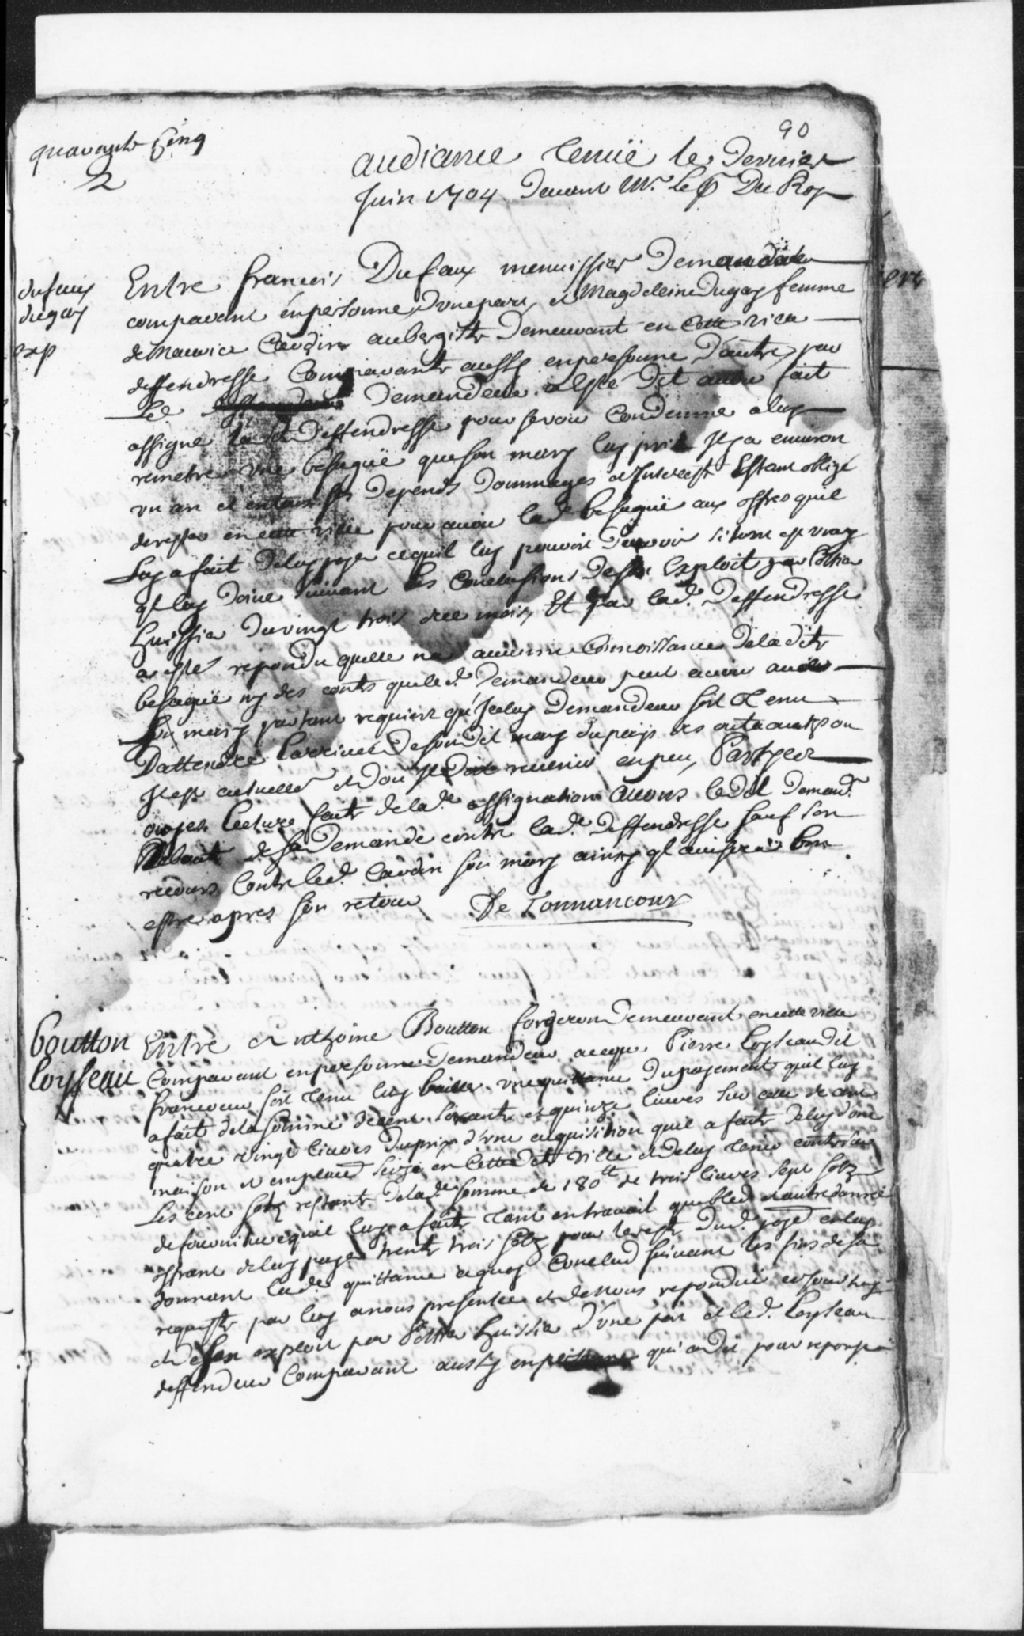 90
quarante Cinq
2
audiance Tenüe le dernier
Juin 1704 devant Mr. le P. Du Roy
dufaux
dugay
exp
Entre francois Dufaux menuissier demandeur
comparant en personne d'une part, et Magdelleine dugay femme
de Maurice Cardin aubergiste demeurant en cette ville
deffendresse Comparante aussy en personne d'autre, par
Le demandeur a esté dit avoir fait
assigné la d. deffendresse pour se voir Condemné a luy
remetre une besaguë que son mary luy prit Il y a environ
un an et en tous depends dommages et Interest Estant obligé
de rester en cette ville pour avoir lad. besaguë aux offres quil
Luy a fait de luy payé ce quil luy pouvoit devoir
suivant les Conclusions de son Exploit par
huissier du vingt trois de ce mois Et par lad. deffendresse
a esté repondu quelle na aucunne Connoissance de la dite
besaguë ny des conts que led. demandeur peut avoir avec
Son mary partant requiert que Iceluy demandeur soit Tenu
D'attendre Larrivée de son dit mary du pays des outaouks ou
Il est actuellemt et d'ou Il doit revenir en peu, Partyes
ouyes Lecture faite de lad. assignation avons led. demand.
Debouté de sa demande contre lad. deffendresse sauf son
recours Contre led. Cardin son mary ainsy ql avisera bon
estre apres son retour De Tonnancour
boutton
Loyseau
Entre Anthoine Boutton forgeron demeurant en cette ville
Comparant en personne demandeur a ce que Pierre Loyseau dit
francoeur soit Tenu luy bailler une quittance du payement quil luy
a fait de la somme de cent soixante et quinze livres sur celle de cent
quatre vingt livres du prix d'une acquisition quil a faite de luy d'une
maison et emplacemt size en cette dte ville et de luy Tenir conte sur
Les cent sols restant de lad. somme de 180tt de trois livres sept sols
de fourniture quil luy a faite Tant en travail que bled et autre danrée
offrant de luy payé trente trois sols pour le reste dud. payé en luy
donnant lad. quittance a quoy Conclud suivant les fins de sa
requeste par luy a nous presentée et de nous repondüe
et de son exploit par huissier d'une part et led. Loyseau
deffendeur Comparant aussy en personne qui a dit pour reponse